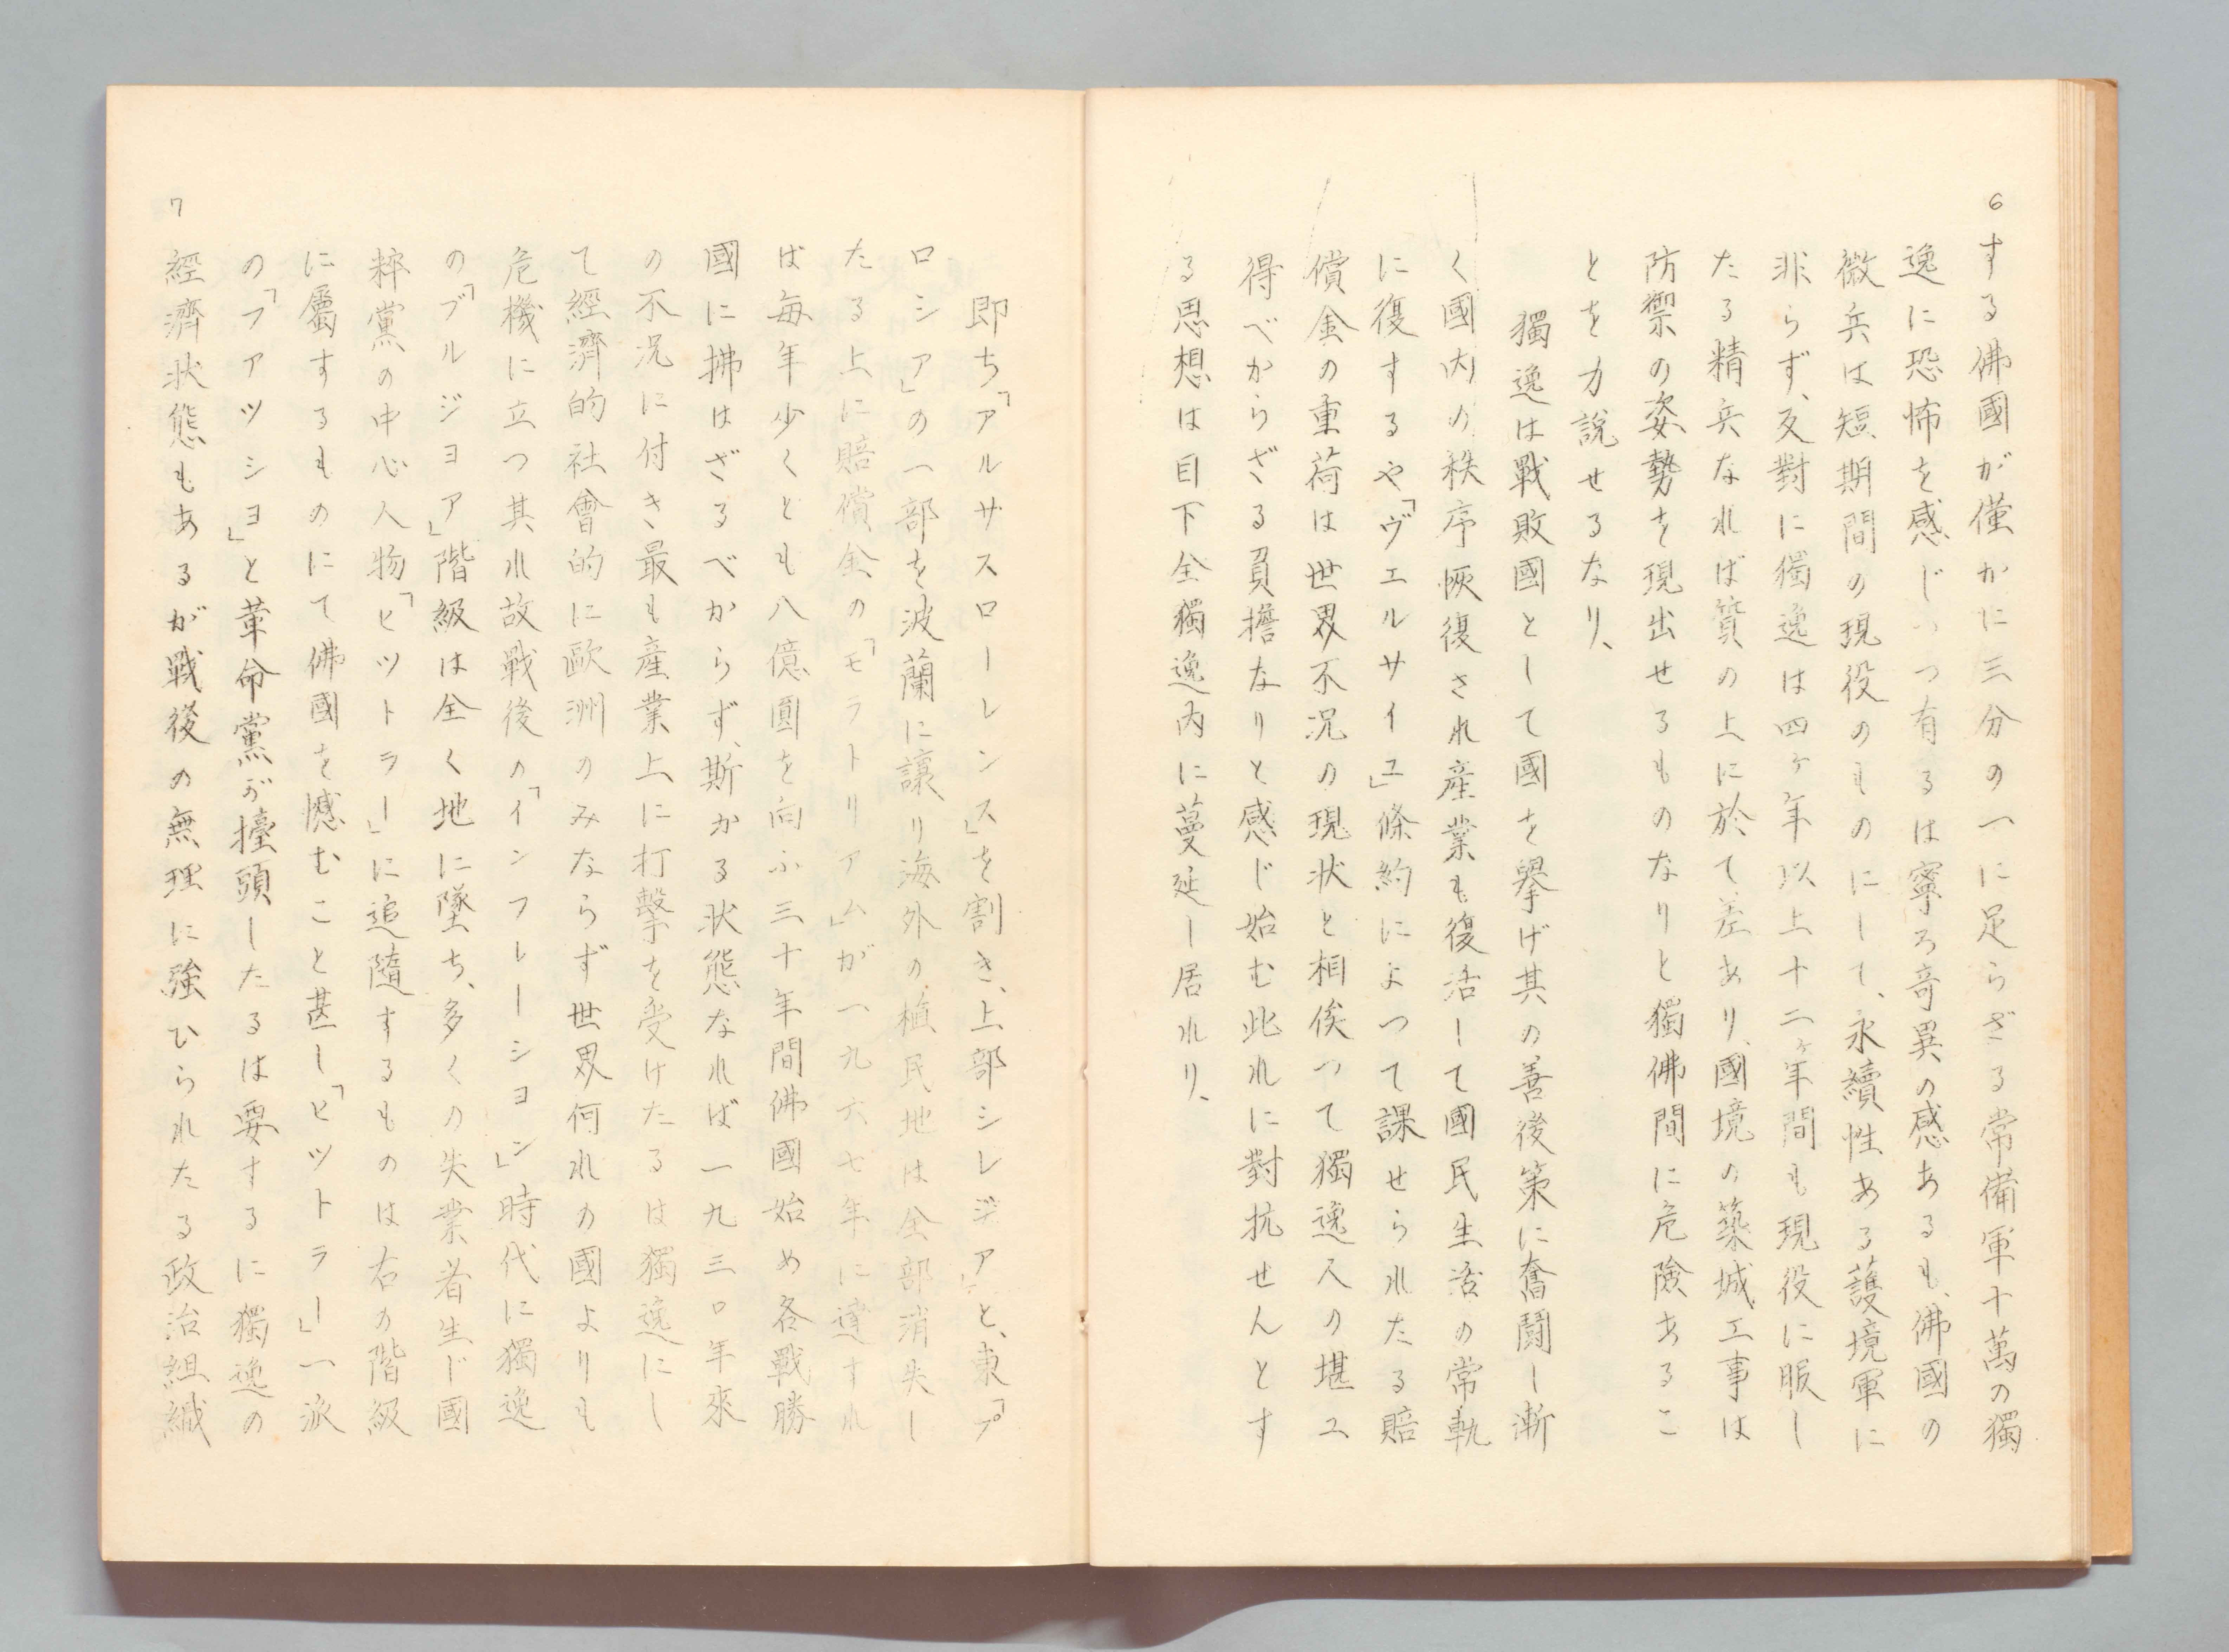 6
する佛國が僅かに三分の一に足らざる常備軍十萬の獨
逸に恐怖を感じつつ有るは寧ろ奇異の感あるも、佛國の
徴兵は短期間の現役のものにして、永續性ある護境軍に
非らず、反對に獨逸は四ヶ年以上十二ヶ年間も現役に服し
たる精兵なれば質の上に於て差あり、國境の築城工事は
防禦の姿勢を現出せるものなりと獨佛間に危險あるこ
とを力說せるなり、
獨逸は戰敗國として國を擧げ其の善後策に奮鬪し漸
く國内の秩序恢復され產業も復活して國民生活の常軌
に復するや「ヴエルサイユ」條約によつて課せられたる賠
償金の重荷は世界不況の現状と相俟つて獨逸人の堪エ
得べからざる負擔なりと感じ始む此れに對抗せんとす
る思想は目下全獨逸内に蔓延し居れり、
即ち「アルサスローレンス」を割き、上部シレジア」と、東「プ
ロシア」の一部を波蘭に讓り海外の植民地は全部消失し
たる上に賠償金の「モラトリアム」が一九六七年に達すれ
ば每年少くとも八億圓を向ふ三十年間佛國始め各戰勝
國に拂はざるべからず、斯かる状態なれば一九三〇年來
の不況に付き最も產業上に打擊を受けたるは獨逸にし
て經濟的社會的に歐洲のみならず世界何れの國よりも
危機に立つ其れ故戰後の「インフレーシヨン」時代に獨逸
の「ブルジヨア」階級は全く地に墜ち、多くの失業者生じ國
粹黨の中心人物「ヒツトラー」に追隨するものは右の階級
に屬するものにて佛國を憾むこと甚し「ヒツトラー」一派
の「フアツシヨ」と革命黨が擡頭したるは要するに獨逸の
7
經濟状態もあるが戰後の無理に強ひられたる政治組織